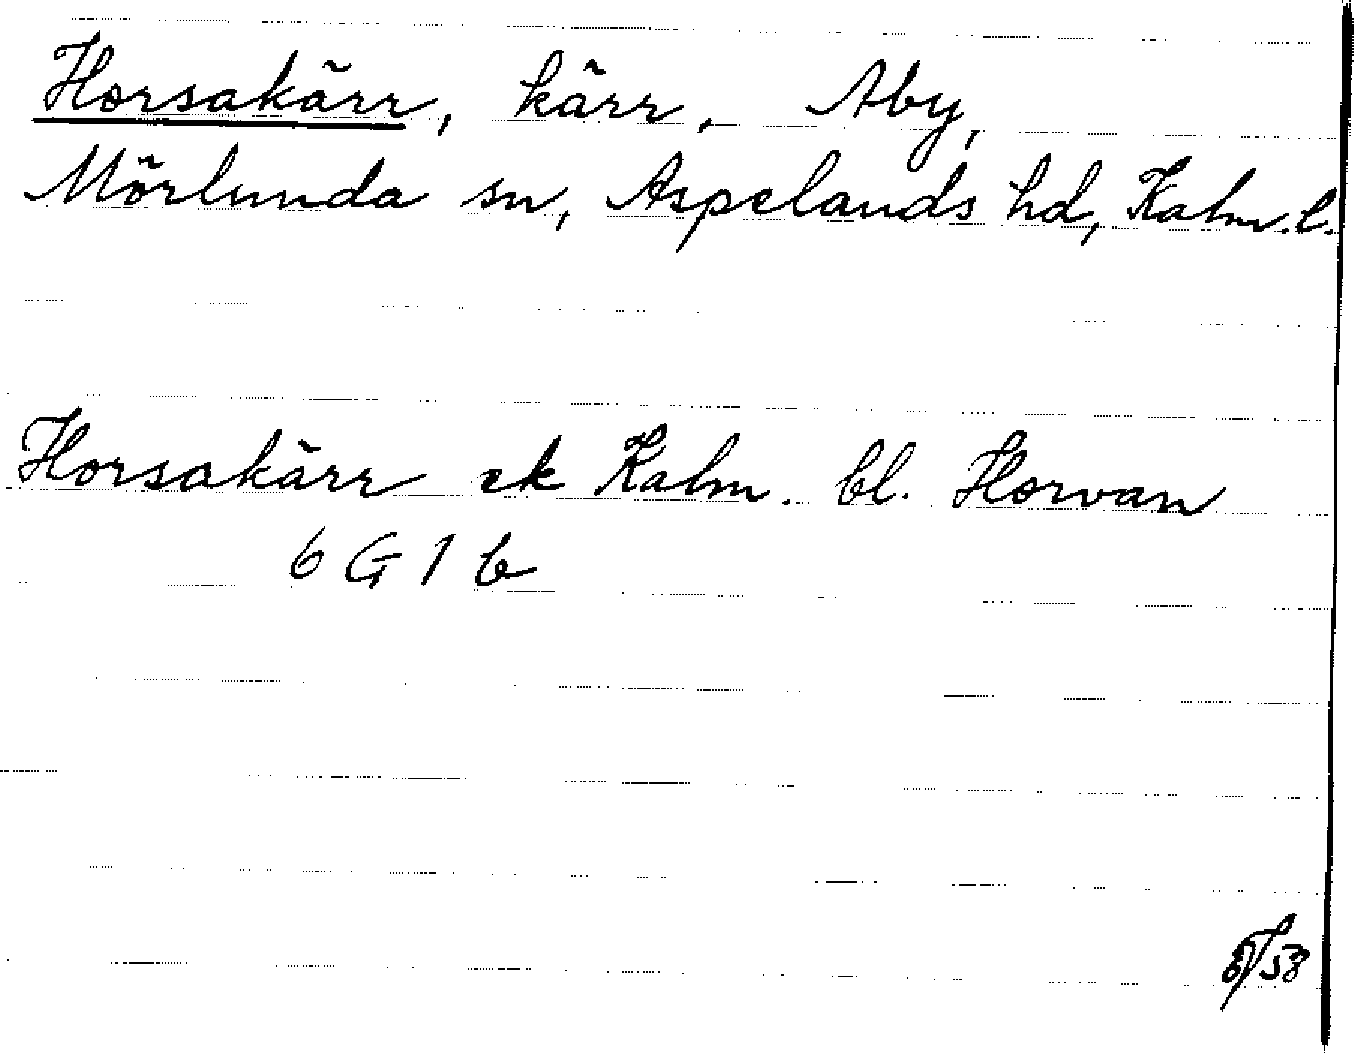 Horsakärr, kärr, Åby,
Mörlunda sn, Aspelands hd, Kalm. l.
Horsakärr ek Kalm. bl. Horvan
6 G 1 b